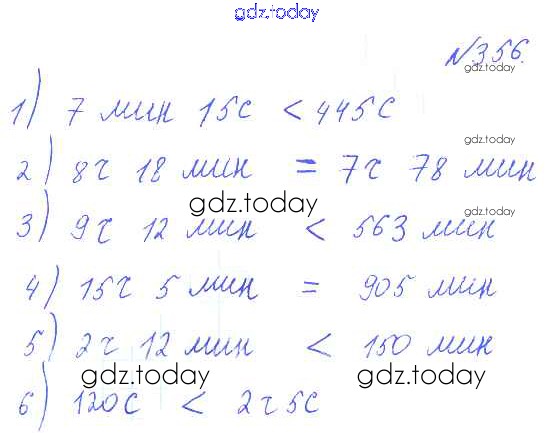 gdz.today
№356.
gdz.today
1) 7 мин 15с < 445с
gdz.today
2) 8ч 18 мин = 7ч 78 мин
gdz.today
gdz.today
3) 9ч 12 мин < 563 мин
4) 15ч 5 мин = 905 мин
5) 2ч 12 мин < 150 мин
gdz.today gdz.today
6) 120с < 2ч 5с